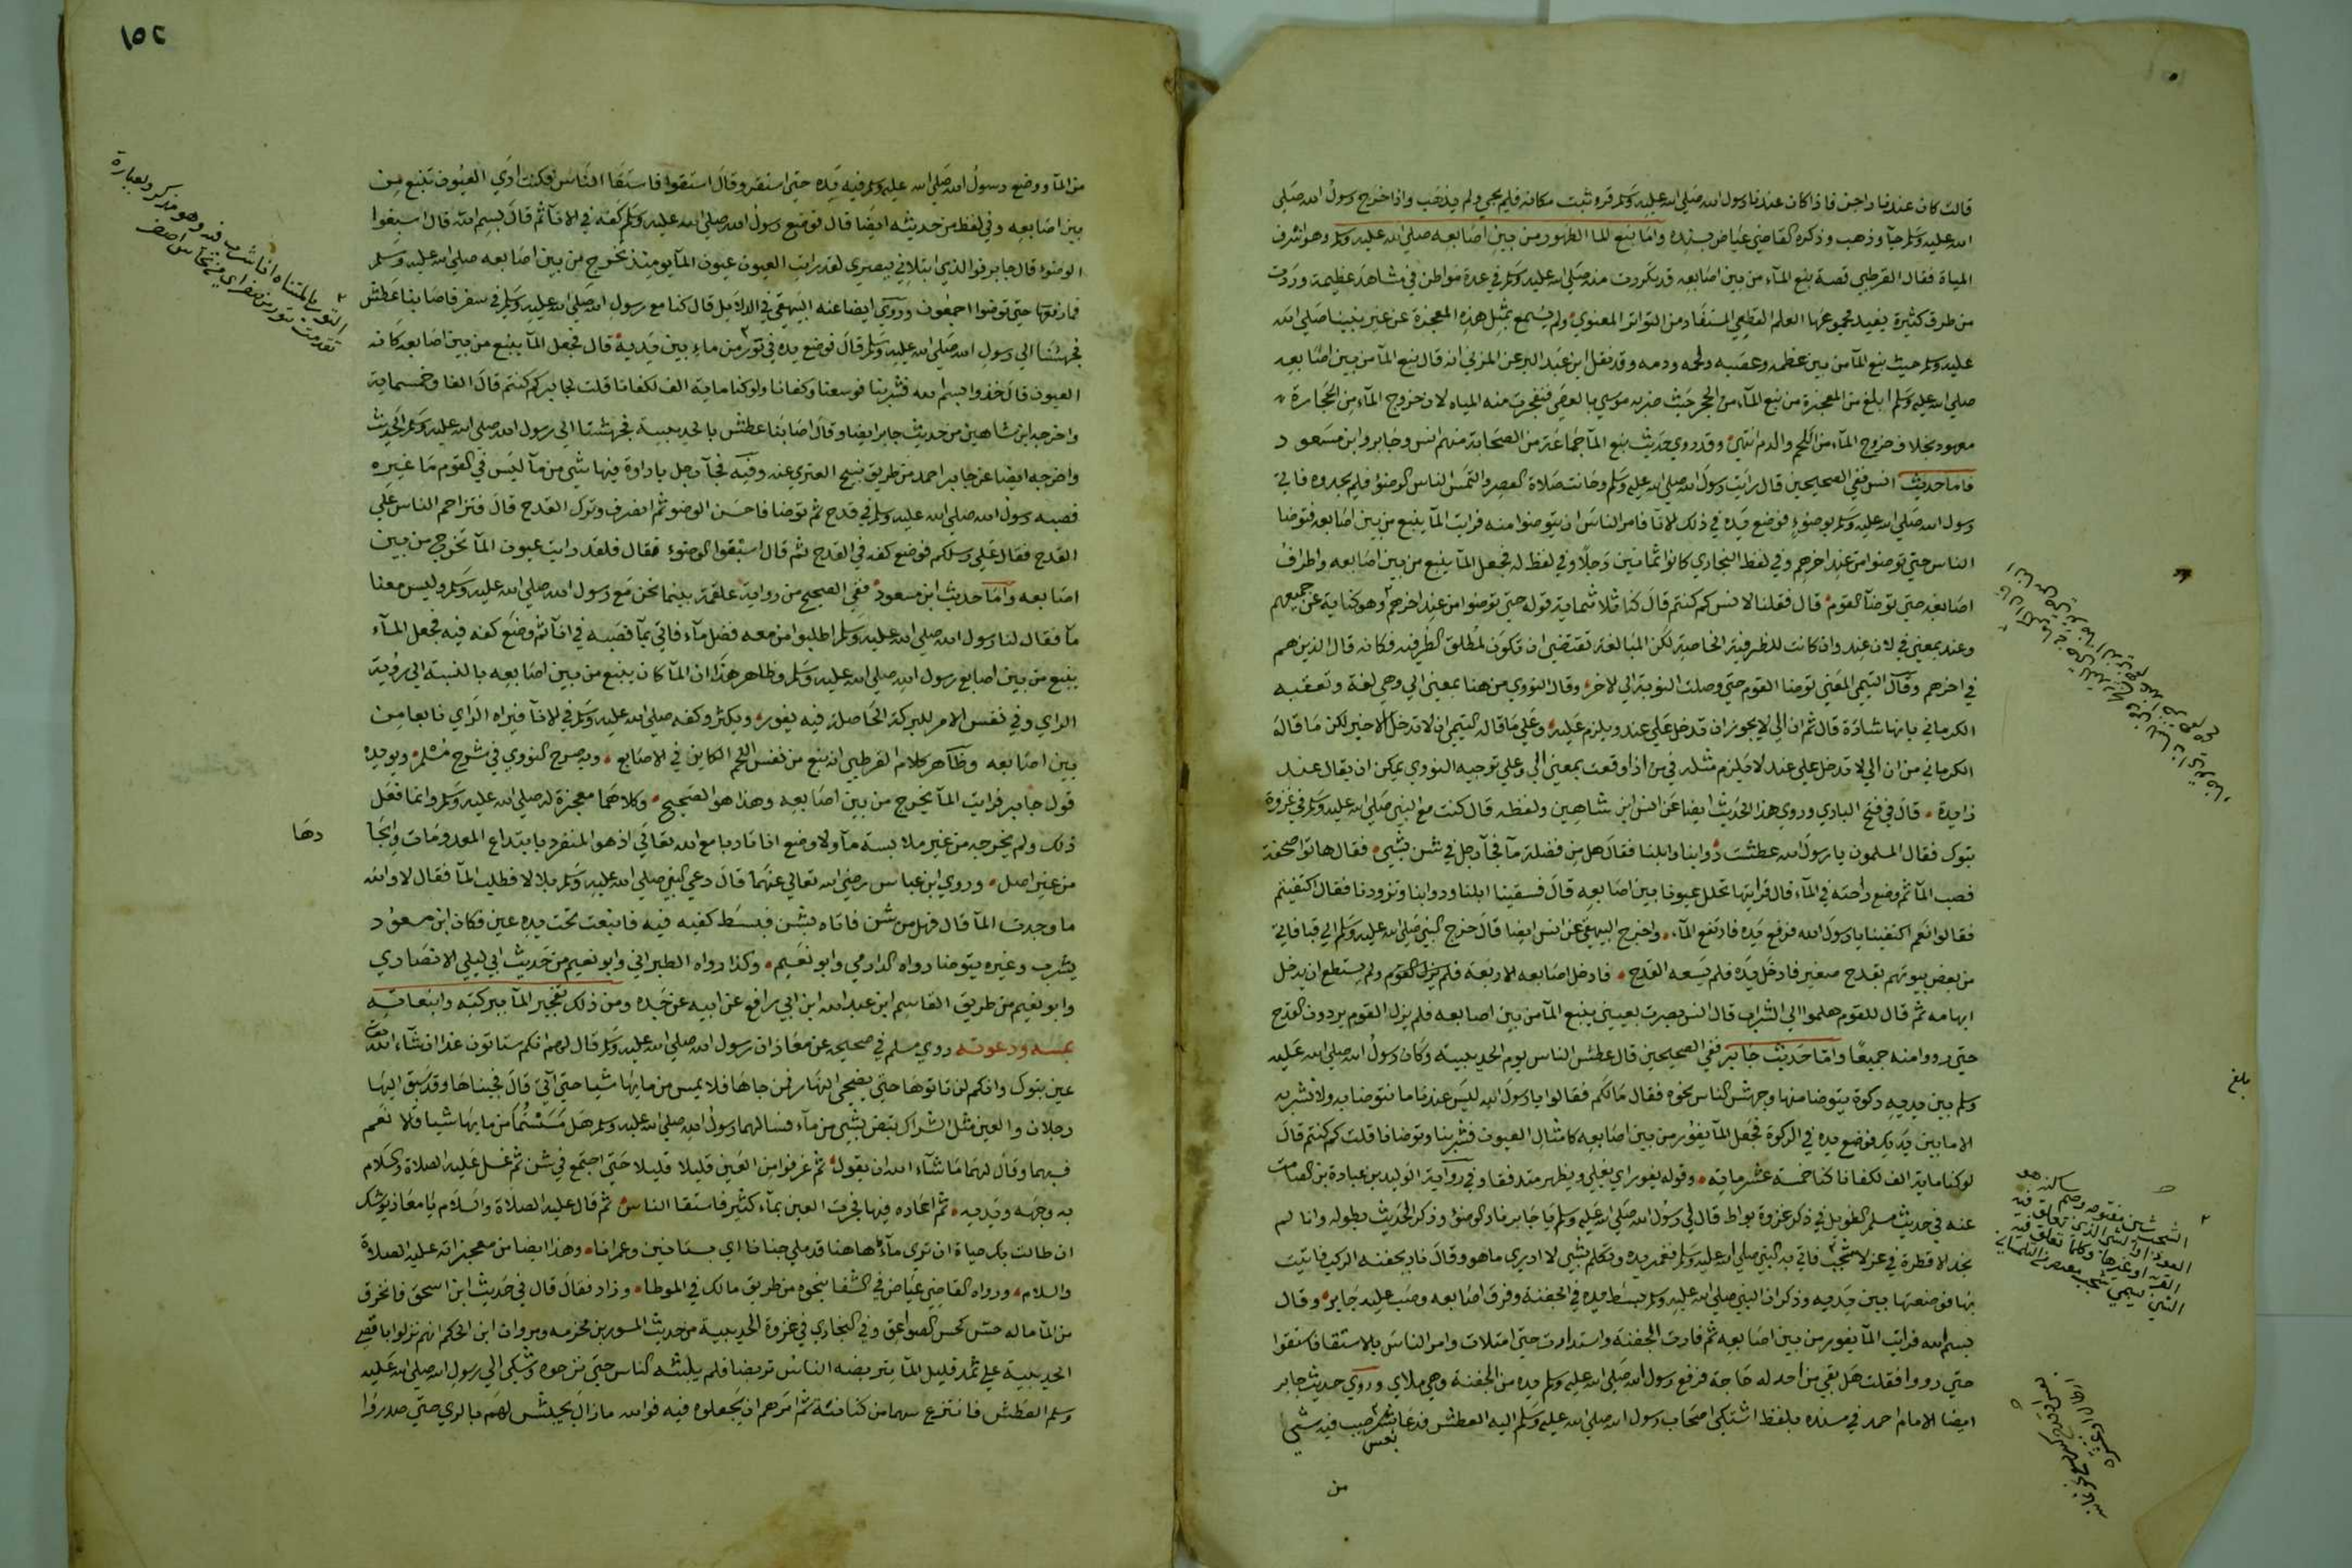 قالت كان عندنا داجن فاذا كان عندنا رسول الله صلى الله عليه وسلم قر وثبت مكانه فلم يجي ولم يذهب واذا خرج رسول الله صلى
الله عليه وسلم جآ وذهب وذكره القاضي عياض بسنده واما نبع الما الطهور من بين اصابعه صلى الله عليه وسلم وهو اشرف
المياة فقال القرطبي قصة نبع المآء من بين اصابعه قد تكررت منه صلى الله عليه وسلم في عدة مواطن في مشاهد عظيمة وردت
من طرق كثيرة يفيد مجموعها العلم القطعي المستفاد من التواتر المعنوي ولم يسمع بمثل هذه المعجزة عن غير نبينا صلى الله
عليه وسلم حيث نبع المآ من بين عظمه وعصبه ولحمه ودمه وقد نقل ابن عبد البر عن المزني انه قال نبع المآ من بين اصابعه
صلى الله عليه وسلم ابلغ من المعجزة من نبع المآء من الحجر حيث ضربه موسي بالعصى فتفجرت منه المياه لان خروج المآء من الحجارة
معهود بخلاف خروج المآء من اللحم والدم انتهى وقد روي حديث نبع المآ جماعة من الصحابة منهم انس وجابر وابن مسعود
فاما حديث انس ففي الصحيحين قال رايت رسول الله صلى الله عليه وسلم وحانت صلاة العصر والتمس الناس الوضوء فلم يجدوه فاتي
رسول الله صلى الله عليه وسلم بوضوء فوضع يده في ذلك الانآ فامر الناس ان يتوضوا منه فرايت المآ ينبع من بين اصابعه فتوضا
الناس حتي توضوا من عند اخرهم وفي لفظ البخاري كانوا ثمانين رجلا وفي لفظ له فجعل المآ ينبع من بين اصابعه واطراف
اصابعه حتى توضآ القوم قال فقلنا لانس كم كنتم قال كنا ثلاثماية قوله حتى توضوا من عند اخرهم وهو كناية عن جميعهم
وعند بمعني في لان عند وان كانت للظرفية الخاصة لكن المبالغة تقتضي ان تكون لمطلق الظرفية فكانه قال الذين هم
في اخرهم وقال التيمي المعني توضا القوم حتي وصلت النوبة الي الاخر وقال النووي من هنا بمعني الي وهي لغة وتعقبه
الكرماني بانها شاذة قال ثم ان الي لا يجوز ان تدخل علي عند ويلزم عليه وعلي ما قاله التيمي ان لا تدخل الاخير لكن ما قاله
الكرماني من ان الي لا تدخل علي عند لا يلزم مثله في من اذا وقعت بمعني الي وعلي توجيه النووي يمكن ان يقال عند
زايدة قال في فتح الباري وروي هذا الحديث ايضا عن انس ابن شاهين ولفظه قال كنت مع النبي صلى الله عليه وسلم في غزوة
تبوك فقال المسلمون يا رسول الله عطشت دوابنا وابلنا فقال هل من فضلة مآ فجآ رجل في شن بشي فقال هاتوا صحفة
فصب المآ ثم وضع راحته في المآء قال فرايتها تخلل عيونا بين اصابعه قال فسقينا ابلنا ودوابنا وتزودنا فقال اكتفيتم
فقالوا نعم اكتفينا يا رسول الله فرفع يده فارتفع المآء واخرج البيهقي عن انس ايضا قال خرج النبي صلى الله عليه وسلم الي قبا فاتي
من بعض بيوتهم بقدح صغير فادخل يده فلم يسعه القدح فادخل اصابعه الاربعة فلم يزل القوم ولم يستطع ان يدخل
ابهامه ثم قال للقوم هلموا الي الشراب قال انس بصرت بعيني ينبع المآ من بين اصابعه فلم يزل القوم يردون القدح
حتي رووا منه جميعا واما حديث جابر ففي الصحيحين قال عطش الناس يوم الحديبية وكان رسول الله صلى الله عليه
وسلم بين يديه ركوة يتوضا منها وجهش الناس نحوه فقال مالكم فقالوا يا رسول الله ليس عندنا ما نتوضا به ولا نشربه
الا ما بين يديك فوضع يده في الركوة فجعل المآ يفور من بين اصابعه كامثال العيون فشربنا وتوضانا قلت كم كنتم قال
لو كنا ماية الف لكفانا كنا خمسة عشر ماية وقوله يفور اي يغلي ويظهر متدفقا وفي رواية الوليد بن عبادة بن الصامت
عنه في حديث مسلم الطويل في ذكر غزوة بواط قال لي رسول الله صلى الله عليه وسلم يا جابر ناد الوضوء وذكر الحديث بطوله وانا لم
نجد الا قطرة في عزلا شجب فاتي به النبي صلى الله عليه وسلم فغمز بيده وتكلم بشي لا ادري ما هو وقال ناد بجفنه الركب فاتيت
بها فوضعتها بين يديه وذكر ان النبي صلى الله عليه وسلم بسط يده في الجفنة وفرق اصابعه وصب عليه جابر وقال
بسم الله فرايت المآ يفور من بين اصابعه ثم فارت الجفنة واستدارت حتي امتلات وامر الناس بالاستقا فاستقوا
حتي رووا فقلت هل بقي من احد له حاجة فرفع رسول الله صلى الله عليه وسلم يده من الجفنة وهي ملاي وروي حديث جابر
ايضا الامام احمد في مسنده بلفظ اشتكى اصحاب رسول الله صلى الله عليه وسلم اليه العطش فدعا بعس فصب فيه شي
بعس
من
بلغ
١٥٢
من المآ ووضع رسول الله صلى الله عليه وسلم فيه يده حتي استقر وقال استقوا فاستقا الناس فكنت اري العيون تنبع من
بين اصابعه وفي لفظ من حديثه ايضا قال فوضع رسول الله صلى الله عليه وسلم كفه في الانآ ثم قال بسم الله قال اسبغوا
الوضوء قال جابر فوالذي ابتلاني ببصري لقد رايت العيون عيون المآ يومئذ تخرج من بين اصابعه صلى الله عليه وسلم
فما رفعها حتي توضوا اجمعون وروي ايضا عنه البيهقي في الدلايل قال كنا مع رسول الله صلى الله عليه وسلم في سفر فاصابنا عطش
فجهشنا الي رسول الله صلى الله عليه وسلم قال فوضع يده في تور من ماء بين يديه قال فجعل المآ ينبع من بين اصابعه كانه
العيون قال خذوا بسم الله فشربنا فوسعنا وكفانا ولو كنا ماية الف لكفانا قلت لجابر كم كنتم قال الفا وخمسماية
واخرجه ابن شاهين من حديث جابر ايضا وقال اصابنا عطش بالحديبية فجهشنا الي رسول الله صلى الله عليه وسلم الحديث
واخرجه ايضا عن جابر احمد من طريق نبيح العنزي عنه وفيه فجآ رجل باداوة فيها شي من مآ ليس في القوم مآ غيره
فصبه رسول الله صلى الله عليه وسلم في قدح ثم توضا فاحسن الوضو ثم انصرف وترك القدح قال فتزاحم الناس علي
القدح فقال علي رسلكم فوضع كفه في القدح ثم قال اسبغوا الوضوء فقال فلقد رايت عيون المآ تخرج من بين
اصابعه واما حديث ابن مسعود ففي الصحيح من رواية علقمة بينما نحن مع رسول الله صلى الله عليه وسلم وليس معنا
مآ فقال لنا رسول الله صلى الله عليه وسلم اطلبوا من معه فضل مآء فاتي بمآ فصبه في انآ ثم وضع كفه فيه فجعل المآء
ينبع من بين اصابع رسول الله صلى الله عليه وسلم وظاهر هذا ان المآ كان ينبع من بين اصابعه بالنسبة الي رؤية
الراي وفي نفس الامر للبركة الحاصلة فيه يفور ويكثر وكفه صلى الله عليه وسلم في الانآ فيراه الراي نابعا من
بين اصابعه وظاهر كلام القرطبي انه نبع من نفس اللحم الكاين في الاصابع وبه صرح النووي في شرح مسلم ويويده
قول جابر فرايت المآ يخرج من بين اصابعه وهذا هو الصحيح وكلاهما معجزة له صلى الله عليه وسلم وانما فعل
ذلك ولم يخرجه من غير ملابسة مآ ولا وضع انا تادبا مع الله تعالي اذ هو المنفرد بابتداع المعدومات وايجا
دها
من غير اصل وروي ابن عباس رضي الله تعالي عنهما قال دعي النبي صلى الله عليه وسلم بلالا فطلب المآ فقال لا والله
ما وجدت المآ قال فهل من شن فاتاه بشن فبسط كفيه فيه فانبعت تحت يده عين فكان ابن مسعود
يشرب وغيره يتوضا رواه الدارمي وابو نعيم وكذا رواه الطبراني وابو نعيم من حديث ابي ليلي الانصاري
وابو نعيم من طريق القاسم ابن عبد الله ابن ابي رافع عن ابيه عن جده ومن ذلك تفجير المآ ببركته وانبعاثه
بمسه ودعوته روي مسلم في صحيحه عن معاذ ان رسول الله صلى الله عليه وسلم قال لهم انكم ستاتون غدا ان شآء الله
عين تبوك وانكم لن تاتوها حتى يضحي النهار فمن جاها فلا يمس من مايها شيا حتي آتي قال فجيناها وقد سبق اليها
رجلان والعين مثل الشراك تبض بشي من مآء فسالهما رسول الله صلى الله عليه وسلم هل مسستما من مايها شيا قالا نعم
فسبهما وقال لهما ما شآء الله ان يقول ثم غرفوا من العين قليلا قليلا حتي اجتمع في شن ثم غسل عليه الصلاة والسلام
به وجهه ويديه ثم اعاده فيها فجرت العين بمآء كثير فاستقا الناس ثم قال عليه الصلاة والسلام يا معاذ يوشك
ان طالت بك حياة ان تري مآء هاهنا قد ملي جنانا اي بساتين وعمرانا وهذا ايضا من معجزاته عليه الصلاة
والسلام ورواه القاضي عياض في الشفا بنحوه من طريق مالك في الموطا وزاد فقال قال في حديث ابن اسحق فانخرق
من المآ ما له حس كحس الصواعق وفي البخاري في غزوة الحديبية من حديث المسور بن مخرمه ومروان ابن الحكم انهم نزلوا باقصي
الحديبية علي ثمد قليل المآ يتربضه الناس تربضا فلم يلبثه الناس حتي نزحوه وشكي الي رسول الله صلى الله عليه
وسلم العطش فانتزع سهما من كنانته ثم امرهم ان يجعلوه فيه فوالله ما زال يجيش لهم بالري حتي صدروا